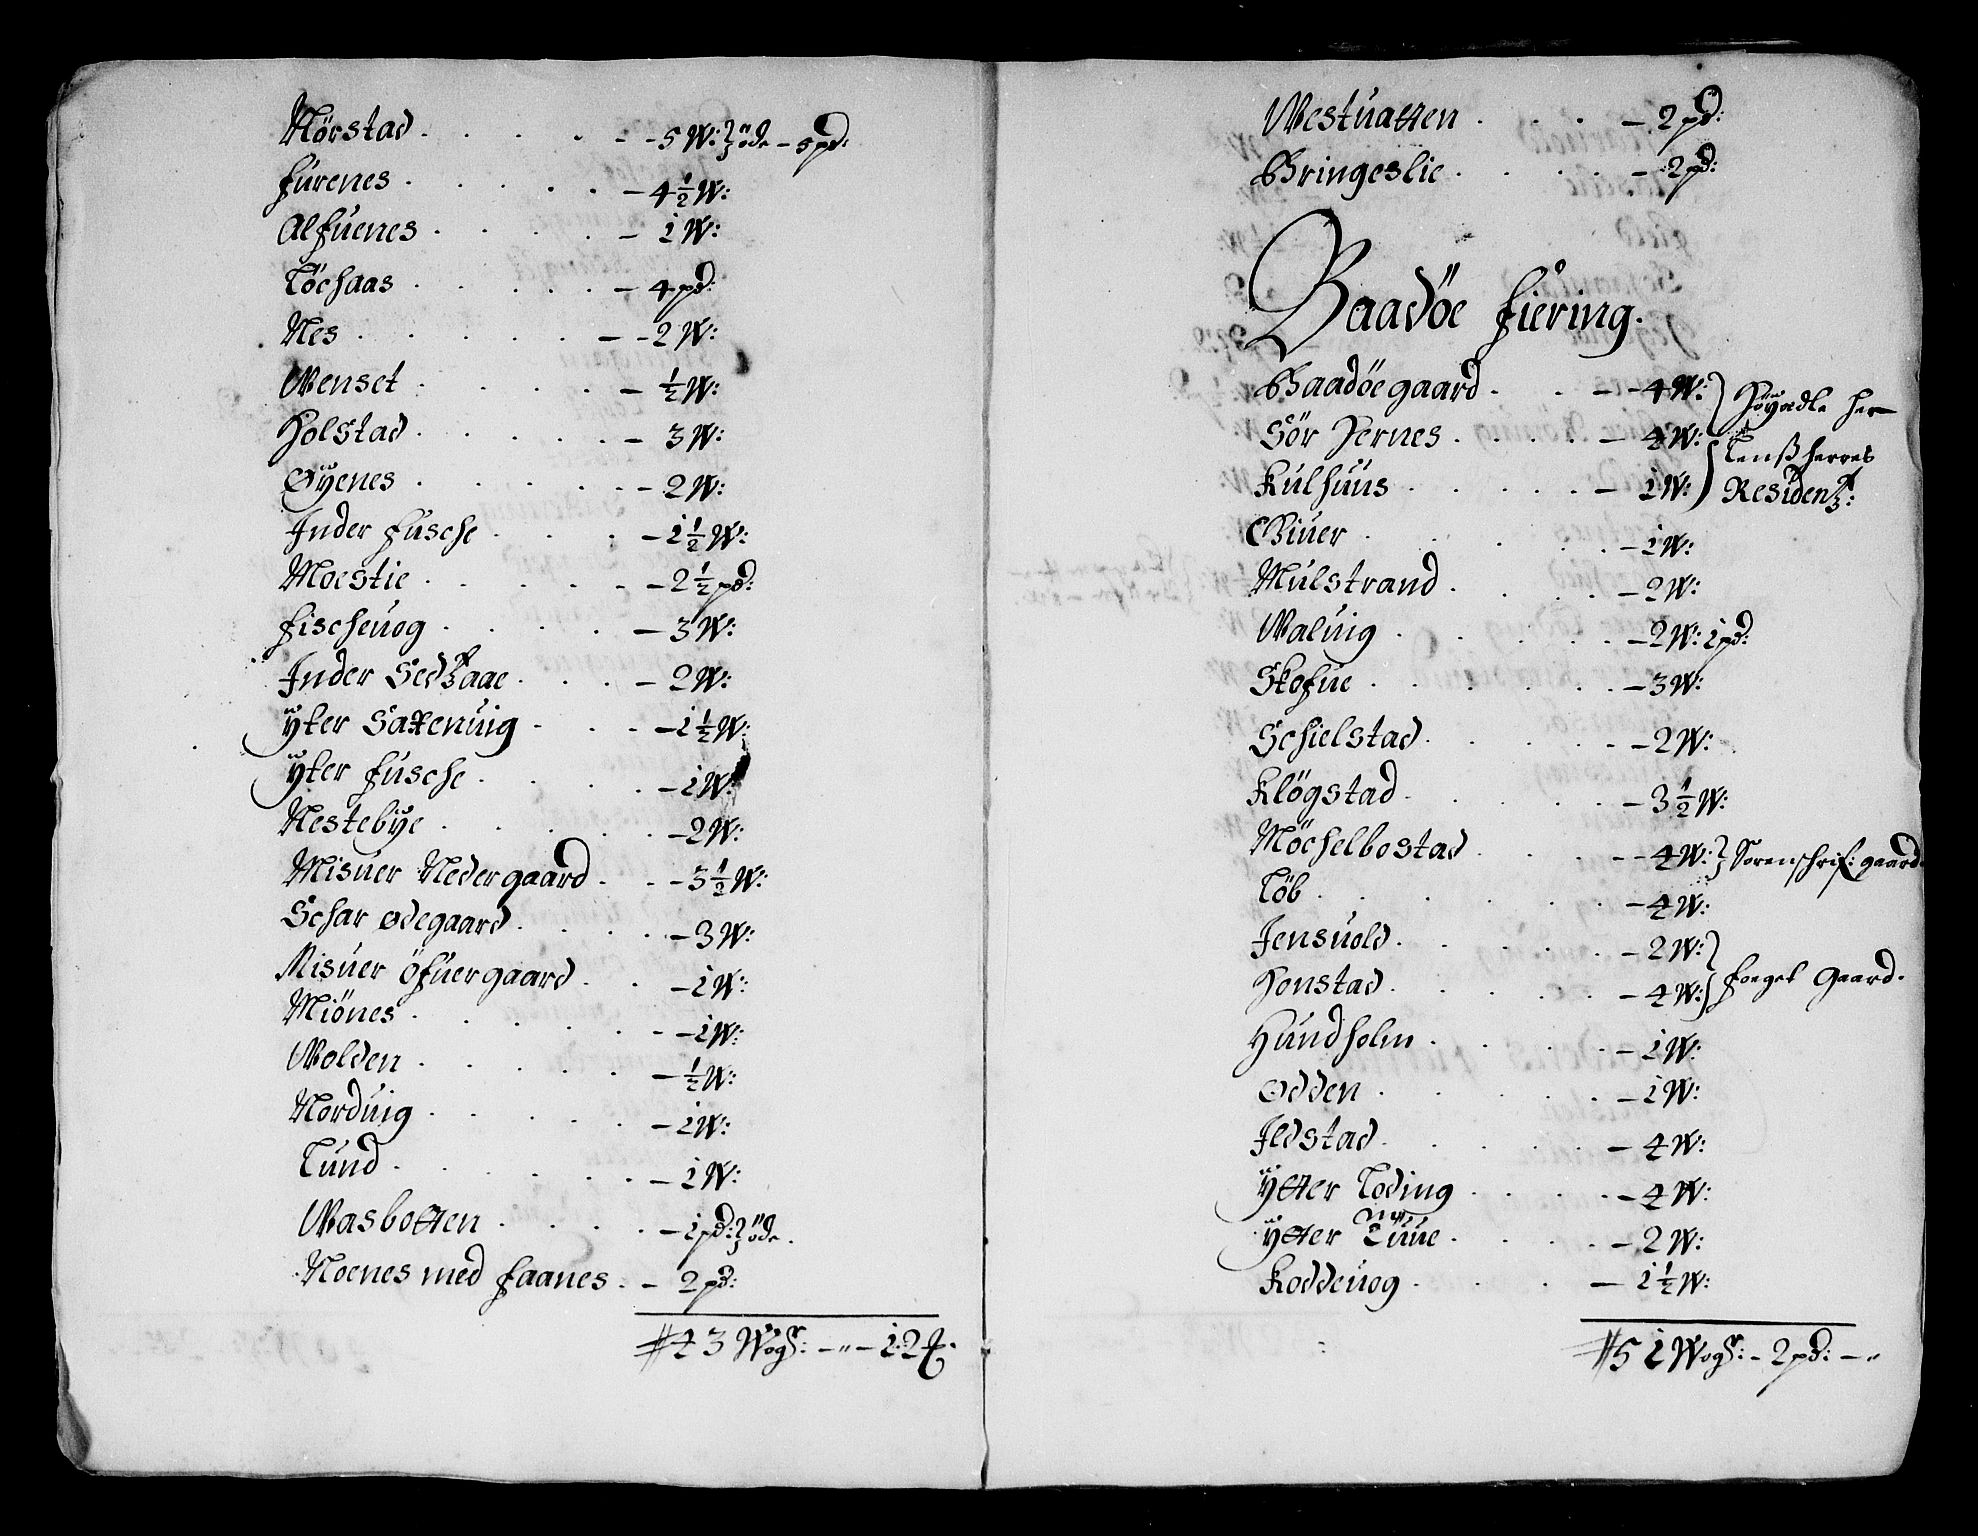 Mörstad . . . . . - 5 W: } öde - 5 pd:
Furenes . . . . . - 4 ½ W:
Alfuenes . . . . - 1 W:
Löchaas . . . . . - 4 pd:
Nes . . . . . - 2 W:
Wenset . . . . . - ½ W:
Holstad . . . . . - 3 W:
Øyenes . . . . . - 2 W:
Inder Fusche . . . - 1 ½ W:
Moestie . . . . . - 2 ½ pd:
Fischeuog . . . . - 3 W:
Inder Sedzaae . . . - 2 W:
Yter Saxenuig . . . - 1 ½ W:
Yter Fusche . . . . - 1 W:
Nestebye . . . . . - 2 W:
Misuer Nedergaard . . - 3 ½ W:
Schar Ødegaard . . . . - 3 W:
Misuer Öfuergaard . . - 1 W:
Miönes . . . . . - 1 W:
Wolden . . . . . - ½ W:
Norduig . . . . . - 1 W:
Lund . . . . . - 1 W:
Wasbotten . . . . - 1 pd: } öde .
Noenes med Faanes . - 2 pd:
# 43 Wogr: - " - 12 #.
Westuatten . . . . - 2 pd:
Bringeslie . . . . - 2 pd:
Baadöe Fiering .
Baadöegaard . . . - 4 W: } Höyædle her
Sör Jernes . . . . - 4 W: } Lenßherres
Kulhuus . . . . - 1 W: } Residentz:
Biuer . . . . . - 1 W:
Mulstrand . . . . - 2 W:
Waluig . . . . . - 2 W: 1 pd:
Skofue . . . . . - 3 W:
Schielstad . . . . - 2 W:
Klögstad . . . . . - 3 ½ W:
Möchelbostad . . . - 4 W: } Sorenschrif: gaard .
Löb . . . . . - 4 W:
Jensuold . . . . . - 2 W: }
Honstad . . . . . - 4 W: } Foeget Gaard .
Hundholm . . . . - 1 W:
Odden . . . . . - 1 W:
Ildstad . . . . . - 4 W:
Ytter Loding . . . . - 4 W:
Ytter Luue . . . . - 2 W:
Koddeuog . . . . - 1 ½ W:
# 51 Wogr: - 2 pd: - "